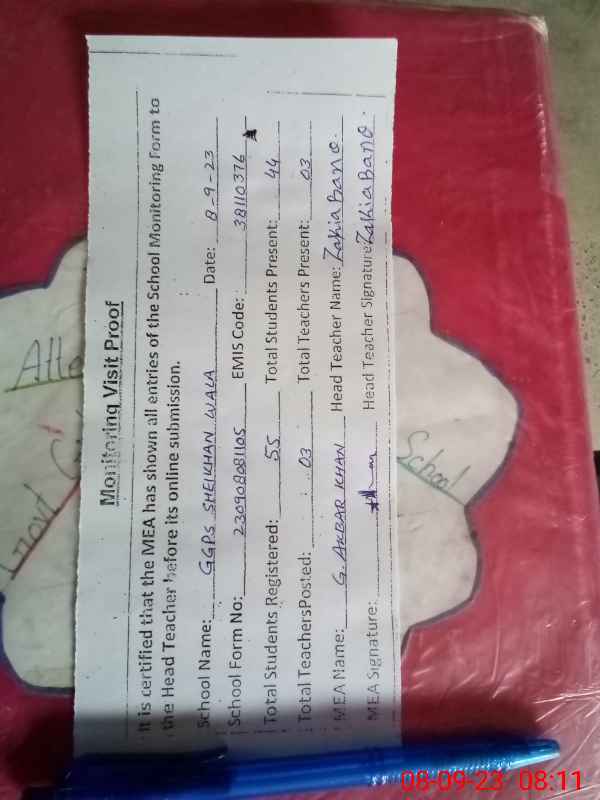 Monitoring Visit Proof
It is certified that the MEA has shown all entries of the School Monitoring Form to
the Head Teacher before its online submission.
School Name: GGPS SHEIKHAN WALA Date: 8-9-23
School Form No: 230908081105 EMIS Code: 38110376
Total Students Registered: 55 Total Students Present: 44
Total TeachersPosted: 03 Total Teachers Present: 03
MEA Name: G. AKBAR KHAN Head Teacher Name: Zakia Bano.
MEA Signature: Head Teacher Signature Zakia Bano.
Atte
Govt
School
08-09-23 08:11